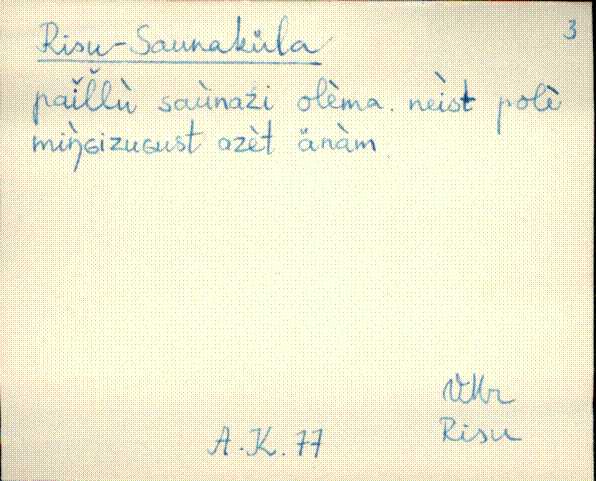 3
Risu-Saunaküla
paĭl̆l̆ù saùnaži olèma. neìst polè
miǹɢizuɢust azèt änàm
VMr
Risu
A.K. 77